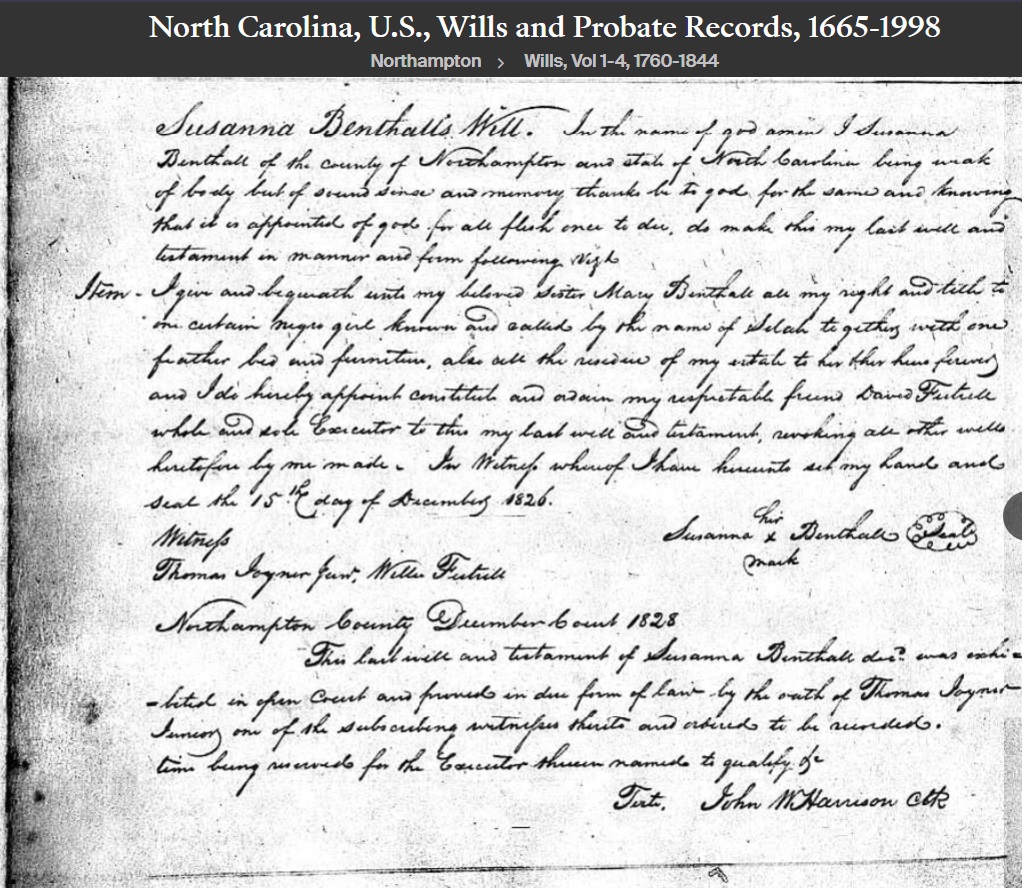 North Carolina, U.S., Wills and Probate Records, 1665-1998
Northampton > Wills, Vol 1-4, 1760-1844
Susanna Benthall's Will. In the name of god amen I Susanna
Benthall of the county of Northampton and state of North Carolina being weak
of body but of sound sense and memory thanks be to god for the same and knowing
that it is appointed of god for all flesh once to die, do make this my last will and
testament in manner and form following Vizt
Item - I give and bequeath unto my beloved sister Mary Benthall all my right and title to
one certain negro girl known and called by the name of Selah together with one
feather bed and furniture, also all the residue of my estate to her & her heirs forever
and I do hereby appoint constitute and ordain my respectable friend David Futrell
whole and sole Executor to this my last will and testament, revoking all other wills
heretofore by me made. In Witness whereof I have hereunto set my hand and
seal the 15th day of December 1826.
her
Witness Susanna x Benthall Seal
mark
Thomas Joyner Junr, Willie Futrell
Northampton County December Court 1828
This last will and testament of Susanna Benthall decd was exhi=
=bited in open Court and proved in due form of law by the oath of Thomas Joyner
Junior one of the subscribing witnesses thereto and ordered to be recorded.
time being reserved for the Executor therein named to qualify &c
Test. John W Harrison Clk